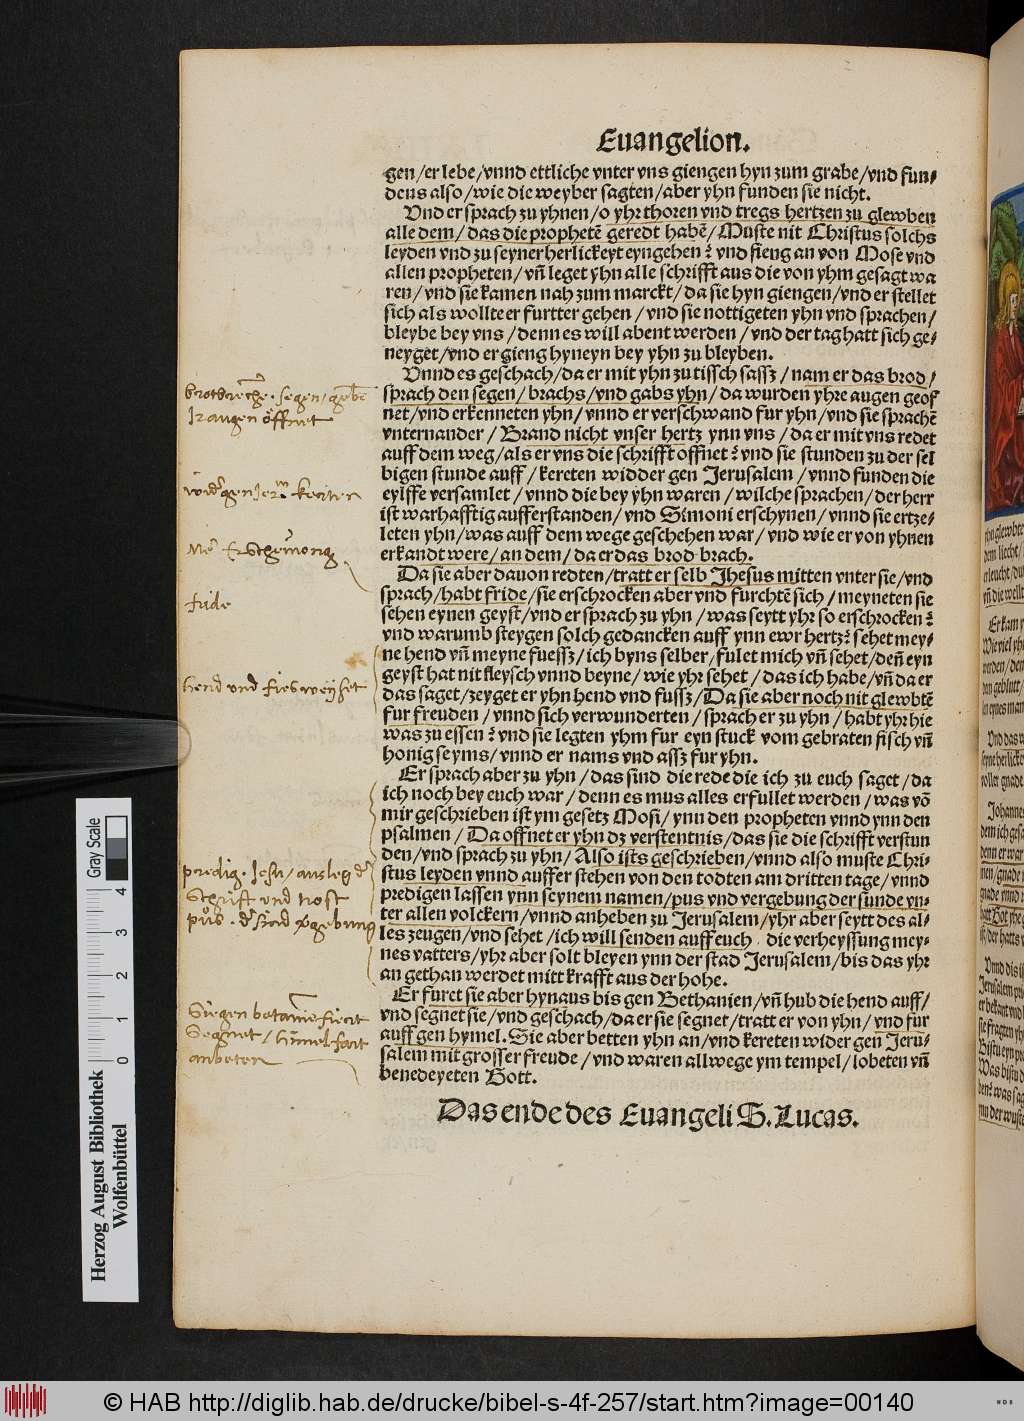 Euangelion.
gen/er lebe/vnnd ettliche vnter vns giengen hyn zum grabe/vnd fun-
dens also/wie die weyber sagten/aber yhn funden sie nicht.
Vnd er sprach zu yhnen/o yhr thoren vnd tregs hertzen zu glewben
alle dem/das die prophetē geredt habē/Muste nit Christus solchs
leyden vnd zu seyner herlickeyt eyngehen? vnd fieng an von Mose vnd
allen propheten/vñ leget yhn alle schrifft aus die von yhm gesagt wa
ren/vnd sie kamen nah zum marckt/da sie hyn giengen/vnd er stellet
sich als wollte er furtter gehen/vnd sie nottigeten yhn vnd sprachen/
bleybe bey vns/denn es will abent werden/vnd der tag hatt sich ge-
neyget/vnd er gieng hyneyn bey yhn zu bleyben.
Vnnd es geschach/da er mit yhn zu tissch sassz/nam er das brod/
sprach den segen/brachs/vnd gabs yhn/da wurden yhre augen geof
net/vnd erkenneten yhn/vnnd er verschwand fur yhn/vnd sie sprachē
vnternander/Brand nicht vnser hertz ynn vns/da er mit vns redet
auff dem weg/als er vns die schrifft offnet? vnd sie stunden zu der sel
bigen stunde auff/kereten widder gen Jerusalem/vnnd funden die
eylffe versamlet/vnnd die bey yhn waren/wilche sprachen/der herr
ist warhafftig aufferstanden/vnd Simoni erschynen/vnnd sie ertze-
leten yhn/was auff dem wege geschehen war/vnd wie er von yhnen
erkandt were/an dem/da er das brod brach.
Da sie aber dauon redten/tratt er selb Jhesus mitten vnter sie/vnd
sprach/habt fride/sie erschrocken aber vnd furchtē sich/meyneten sie
sehen eynen geyst/vnd er sprach zu yhn/was seytt yhr so erschrocken?
vnd warumb steygen solch gedancken auff ynn ewr hertz? sehet mey-
ne hend vñ meyne fuessz/ich byns selber/fulet mich vñ sehet/deñ eyn
geyst hat nit fleysch vnnd beyne/wie yhr sehet/das ich habe/vñ da er
das saget/zeyget er yhn hend vnd fussz/Da sie aber noch nit glewbtē
fur freuden/vnnd sich verwunderten/sprach er zu yhn/habt yhr hie
was zu essen? vnd sie legten yhm fur eyn stuck vom gebraten fisch vñ
honig seyms/vnnd er nams vnd assz fur yhn.
Er sprach aber zu yhn/das sind die rede die ich zu euch saget/da
ich noch bey euch war/denn es mus alles erfullet werden/was võ
mir geschrieben ist ym gesetz Mosi/ynn den propheten vnnd ynn den
psalmen/Da offnet er yhn dz verstentnis/das sie die schrifft verstun
den/vnd sprach zu yhn/Also ists geschrieben/vnnd also muste Chri-
stus leyden vnnd auffer stehen von den todten am dritten tage/vnnd
predigen lassen ynn seynem namen/pus vnd vergebung der sunde vn-
ter allen volckern/vnnd anheben zu Jerusalem/yhr aber seytt des al-
les zeugen/vnd sehet/ich will senden auff euch die verheyssung mey-
nes vatters/yhr aber solt bleyen ynn der stad Jerusalem/bis das yhr
an gethan werdet mitt krafft aus der hohe.
Er furet sie aber hynaus bis gen Bethanien/vñ hub die hend auff/
vnd segnet sie/vnd geschach/da er sie segnet/tratt er von yhn/vnd fur
auff gen hymel. Sie aber betten yhn an/vnd kereten wider gen Jeru-
salem mit grosser freude/vnd waren allwege ym tempel/lobeten vñ
benedeyeten Gott.
Das ende des Euangeli S. Lucas.
segen/
Ir augen öffnet
fride
hend und fies weyset
predig. Jesu/
Schrift und
Segnet/himelfart
anbeten
Gray Scale
4
3
2
1
0
Herzog August Bibliothek
Wolfenbüttel
© HAB http://diglib.hab.de/drucke/bibel-s-4f-257/start.htm?image=00140